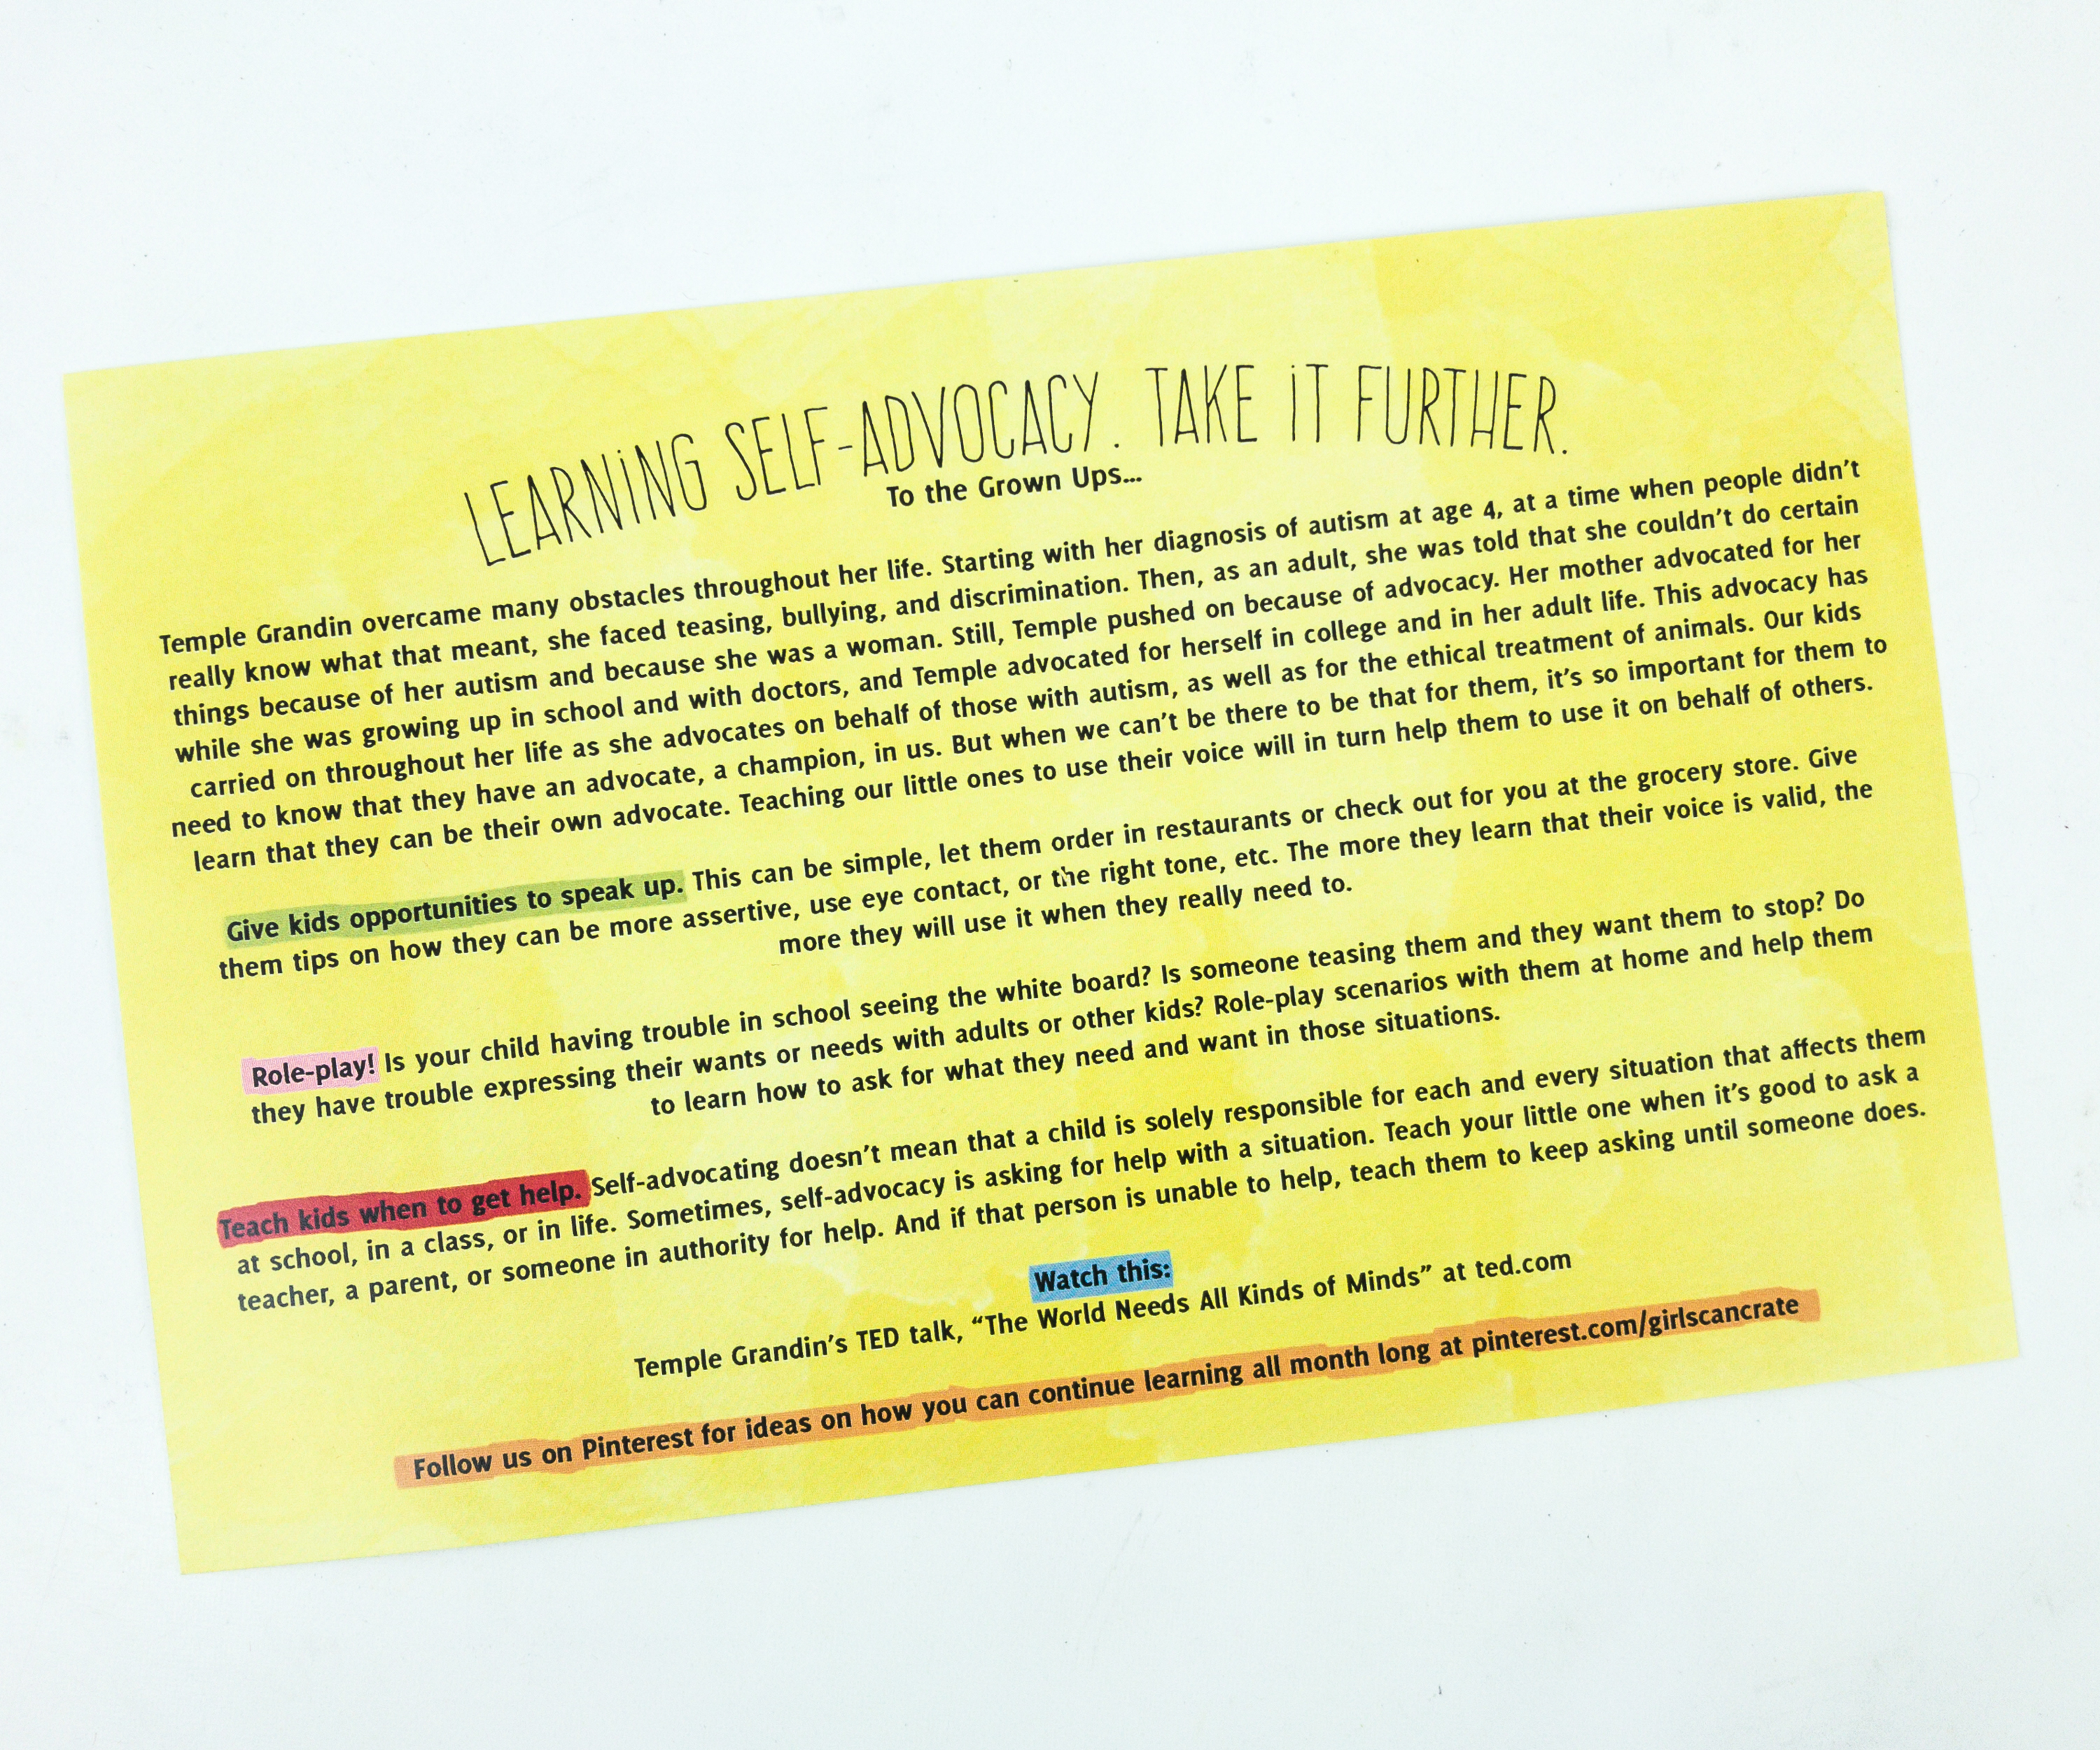 LEARNING SELF-ADVOCACY. TAKE IT FURTHER.
To the Grown Ups...
Temple Grandin overcame many obstacles throughout her life. Starting with her diagnosis of autism at age 4, at a time when people didn't
really know what that meant, she faced teasing, bullying, and discrimination. Then, as an adult, she was told that she couldn't do certain
things because of her autism and because she was a woman. Still, Temple pushed on because of advocacy. Her mother advocated for her
while she was growing up in school and with doctors, and Temple advocated for herself in college and in her adult life. This advocacy has
carried on throughout her life as she advocates on behalf of those with autism, as well as for the ethical treatment of animals. Our kids
need to know that they have an advocate, a champion, in us. But when we can't be there to be that for them, it's so important for them to
learn that they can be their own advocate. Teaching our little ones to use their voice will in turn help them to use it on behalf of others.
Give kids opportunities to speak up. This can be simple, let them order in restaurants or check out for you at the grocery store. Give
them tips on how they can be more assertive, use eye contact, or the right tone, etc. The more they learn that their voice is valid, the
more they will use it when they really need to.
Role-play! Is your child having trouble in school seeing the white board? Is someone teasing them and they want them to stop? Do
they have trouble expressing their wants or needs with adults or other kids? Role-play scenarios with them at home and help them
to learn how to ask for what they need and want in those situations.
Teach kids when to get help. Self-advocating doesn't mean that a child is solely responsible for each and every situation that affects them
at school, in a class, or in life. Sometimes, self-advocacy is asking for help with a situation. Teach your little one when it's good to ask a
teacher, a parent, or someone in authority for help. And if that person is unable to help, teach them to keep asking until someone does.
Watch this:
Temple Grandin's TED talk, "The World Needs All Kinds of Minds" at ted.com
Follow us on Pinterest for ideas on how you can continue learning all month long at pinterest.com/girlscancrate